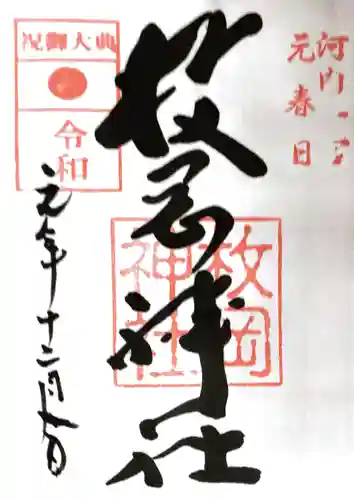 河内一
元春日
枚岡神社
枚岡
神社
祝御大典
令和
元年十二月 日